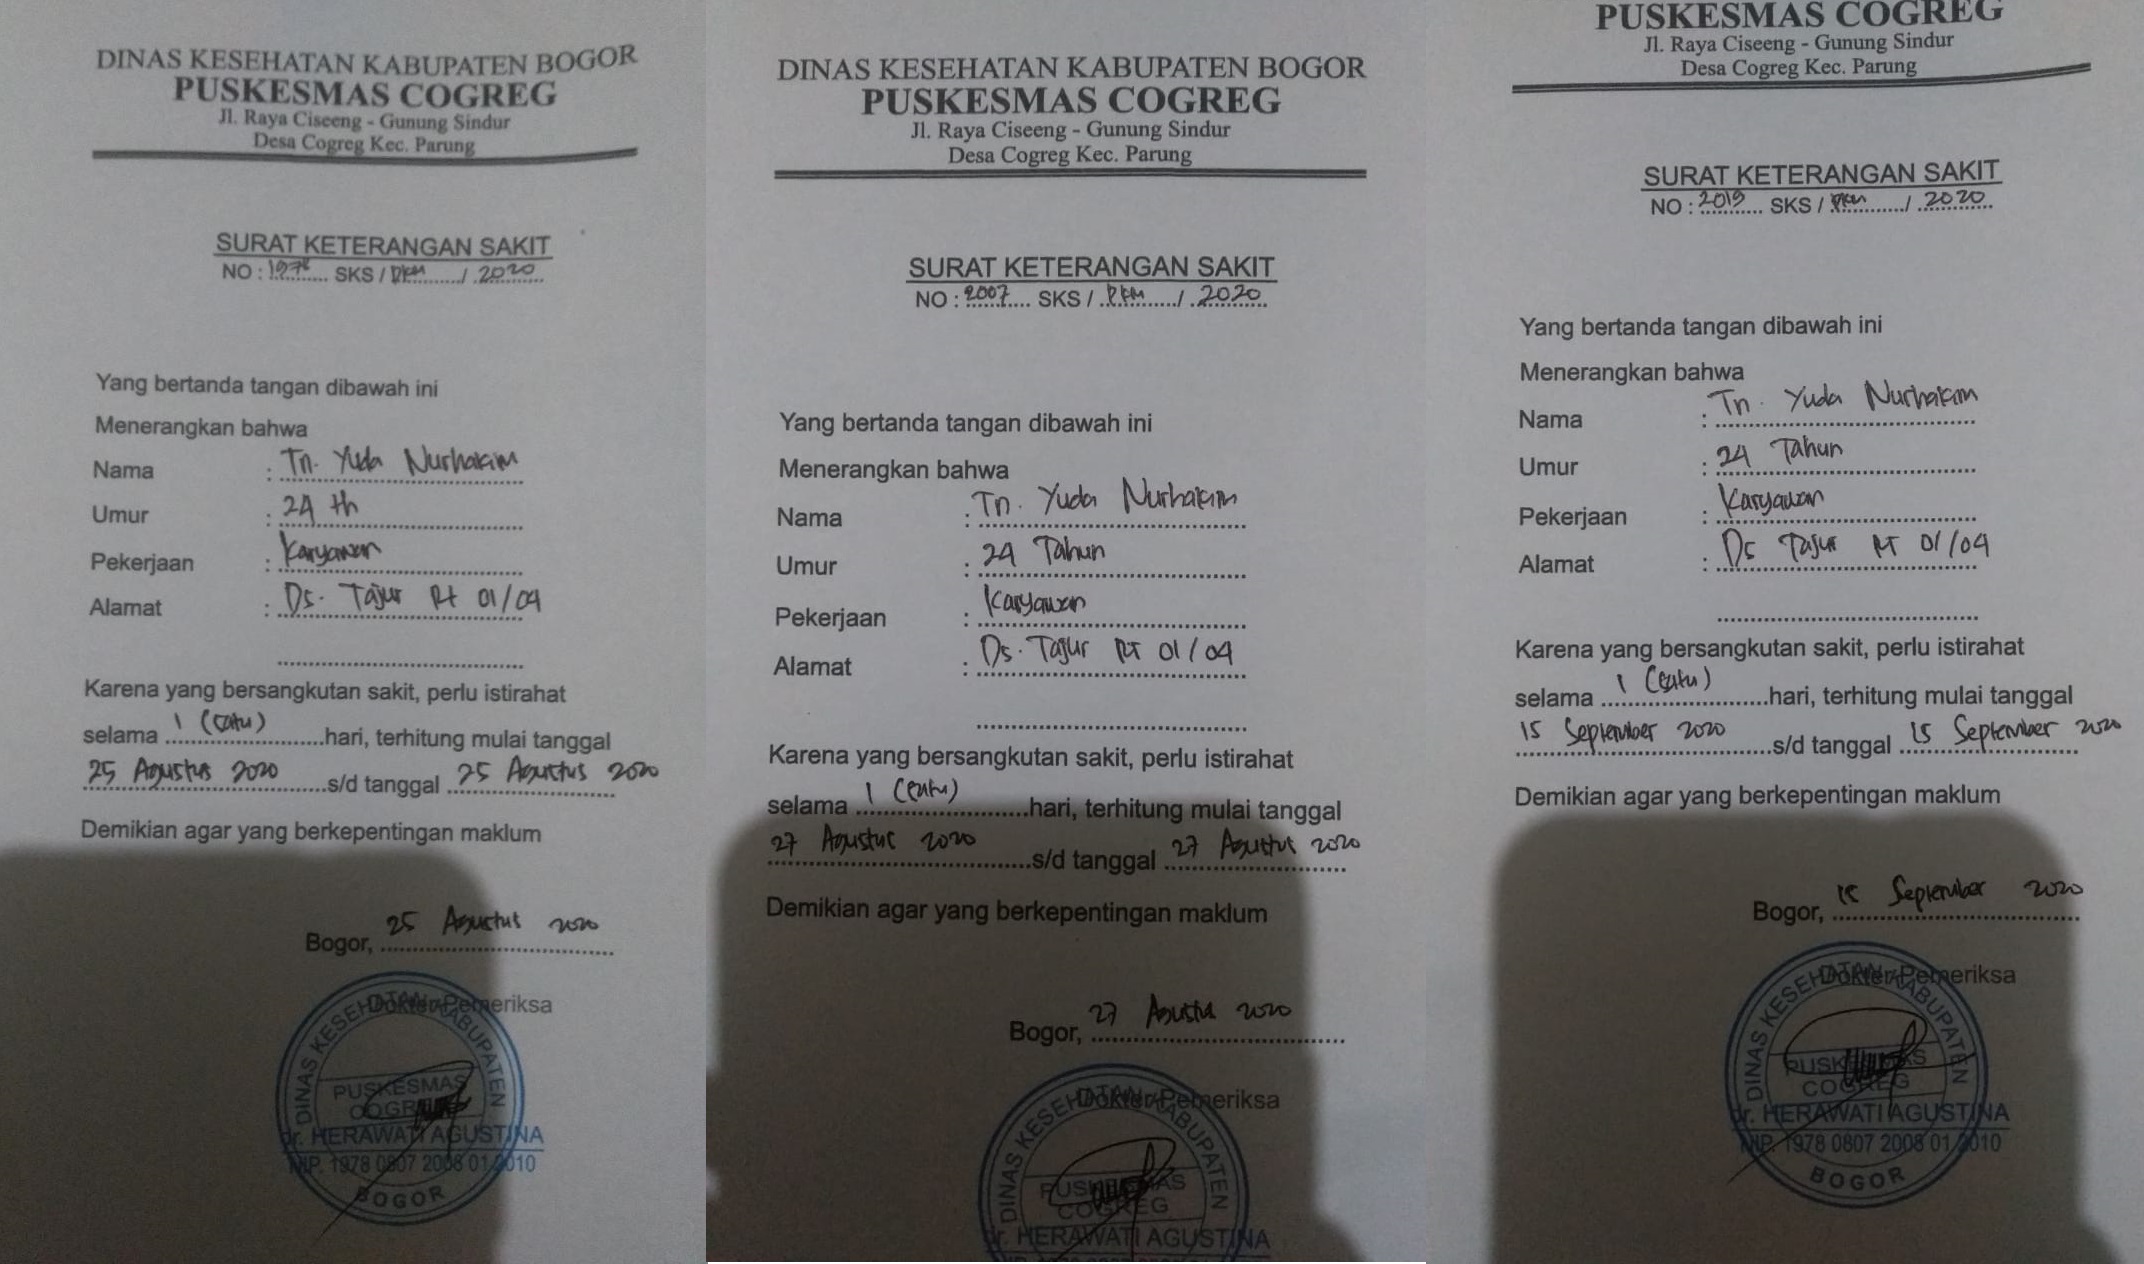 DINAS KESEHATAN KABUPATEN BOGOR
PUSKESMAS COGREG
Jl. Raya Ciseeng - Gunung Sindur
Desa Cogreg Kec. Parung
SURAT KETERANGAN SAKIT
NO : SKS / PKM / 2020
Yang bertanda tangan dibawah ini
Menerangkan bahwa
Nama : Tn. Yuda Nurhakim
Umur : 24 th
Pekerjaan : Karyawan
Alamat : Ds. Tajur Rt 01/04
Karena yang bersangkutan sakit, perlu istirahat
selama 1 (satu) hari, terhitung mulai tanggal
25 Agustus 2020 s/d tanggal 25 Agustus 2020
Demikian agar yang berkepentingan maklum
Bogor, 25 Agustus 2020
Dokter Pemeriksa
DINAS KESEHATAN KABUPATEN
PUSKESMAS
COGREG
dr. HERAWATI AGUSTINA
NIP. 1978 0807 2008 01 2010
BOGOR
DINAS KESEHATAN KABUPATEN BOGOR
PUSKESMAS COGREG
Jl. Raya Ciseeng - Gunung Sindur
Desa Cogreg Kec. Parung
SURAT KETERANGAN SAKIT
NO : 2007 SKS / PKM / 2020
Yang bertanda tangan dibawah ini
Menerangkan bahwa
Nama : Tn. Yuda Nurhakim
Umur : 24 Tahun
Pekerjaan : Karyawan
Alamat : Ds. Tajur RT 01/04
Karena yang bersangkutan sakit, perlu istirahat
selama 1 (satu) hari, terhitung mulai tanggal
27 Agustus 2020 s/d tanggal 27 Agustus 2020
Demikian agar yang berkepentingan maklum
Bogor, 27 Agustus 2020
Dokter Pemeriksa
DINAS KESEHATAN KABUPATEN
PUSKESMAS
COGREG
dr. HERAWATI AGUSTINA
PUSKESMAS COGREG
Jl. Raya Ciseeng - Gunung Sindur
Desa Cogreg Kec. Parung
SURAT KETERANGAN SAKIT
NO : 2019 SKS / PKM / 2020
Yang bertanda tangan dibawah ini
Menerangkan bahwa
Nama : Tn. Yuda Nurhakim
Umur : 24 Tahun
Pekerjaan : Karyawan
Alamat : Ds Tajur RT 01/04
Karena yang bersangkutan sakit, perlu istirahat
selama 1 (satu) hari, terhitung mulai tanggal
15 September 2020 s/d tanggal 15 September 2020
Demikian agar yang berkepentingan maklum
Bogor, 15 September 2020
Dokter Pemeriksa
DINAS KESEHATAN KABUPATEN
PUSKESMAS
COGREG
dr. HERAWATI AGUSTINA
NIP. 1978 0807 2008 01 2010
BOGOR